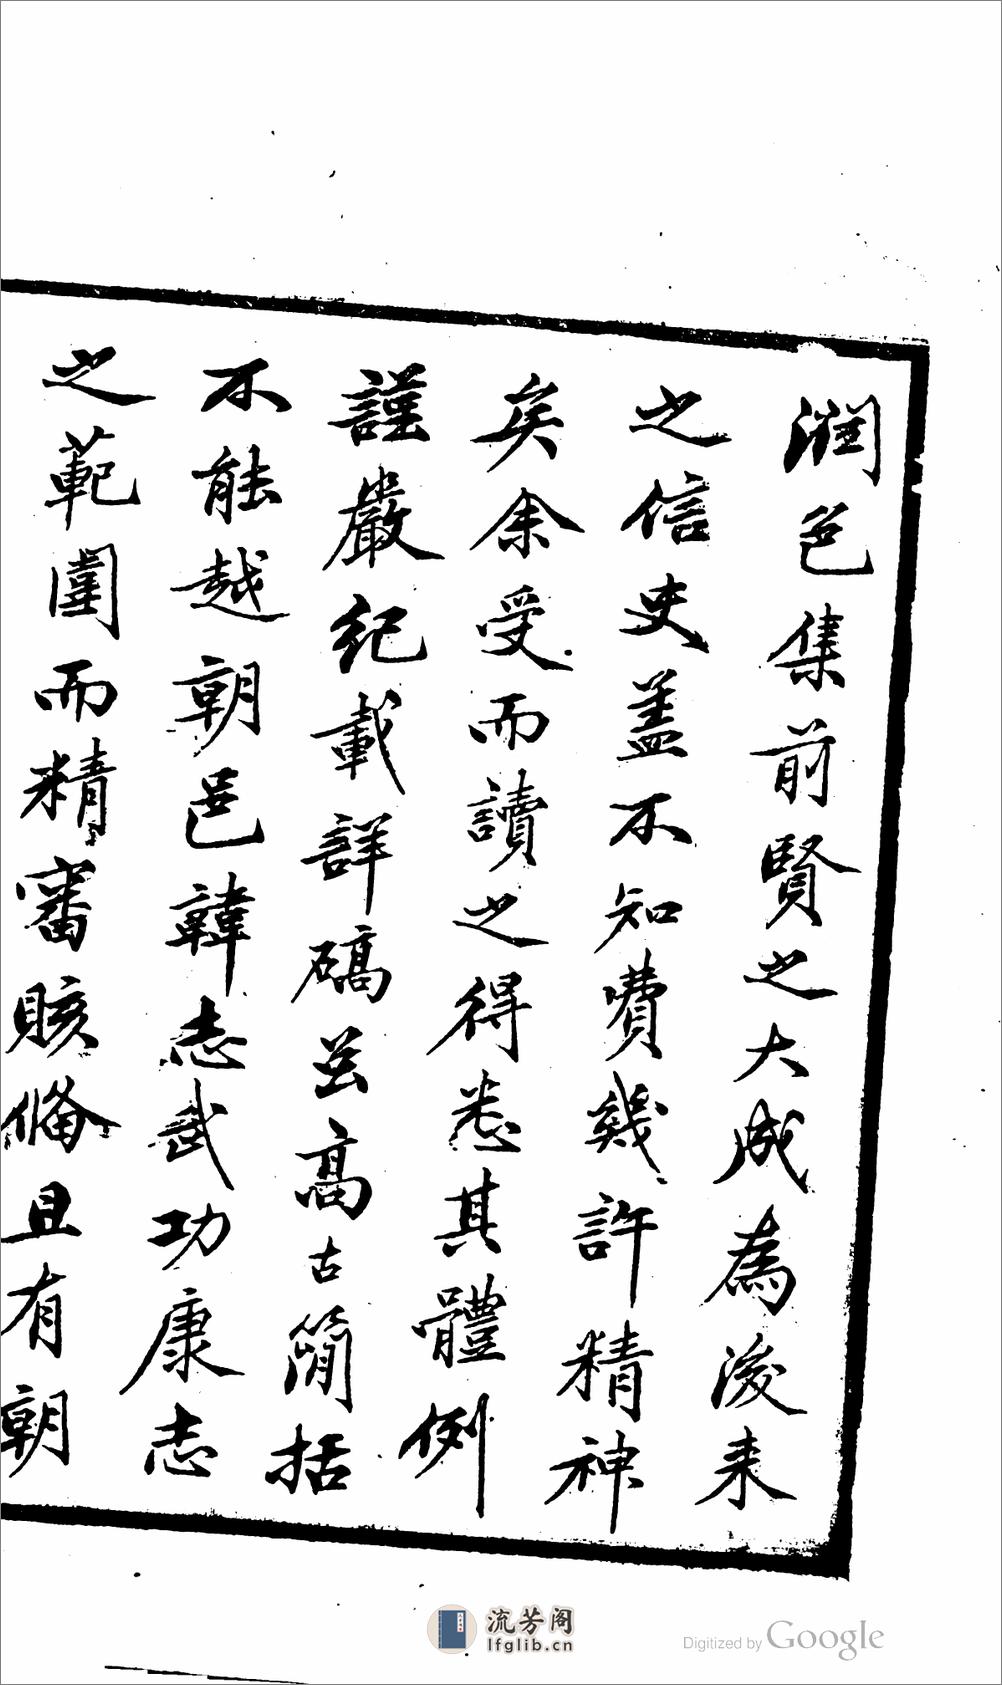 潤色集前賢之大成為後来
之信史蓋不知費幾許精神
矣余受而讀之得悉其體例
謹嚴紀載詳礭並高古簡括
不能越朝邑韓志武功康志
之範圍而精審賅備且有朝
流芳阁
lfglib.cn
Digitized by Google